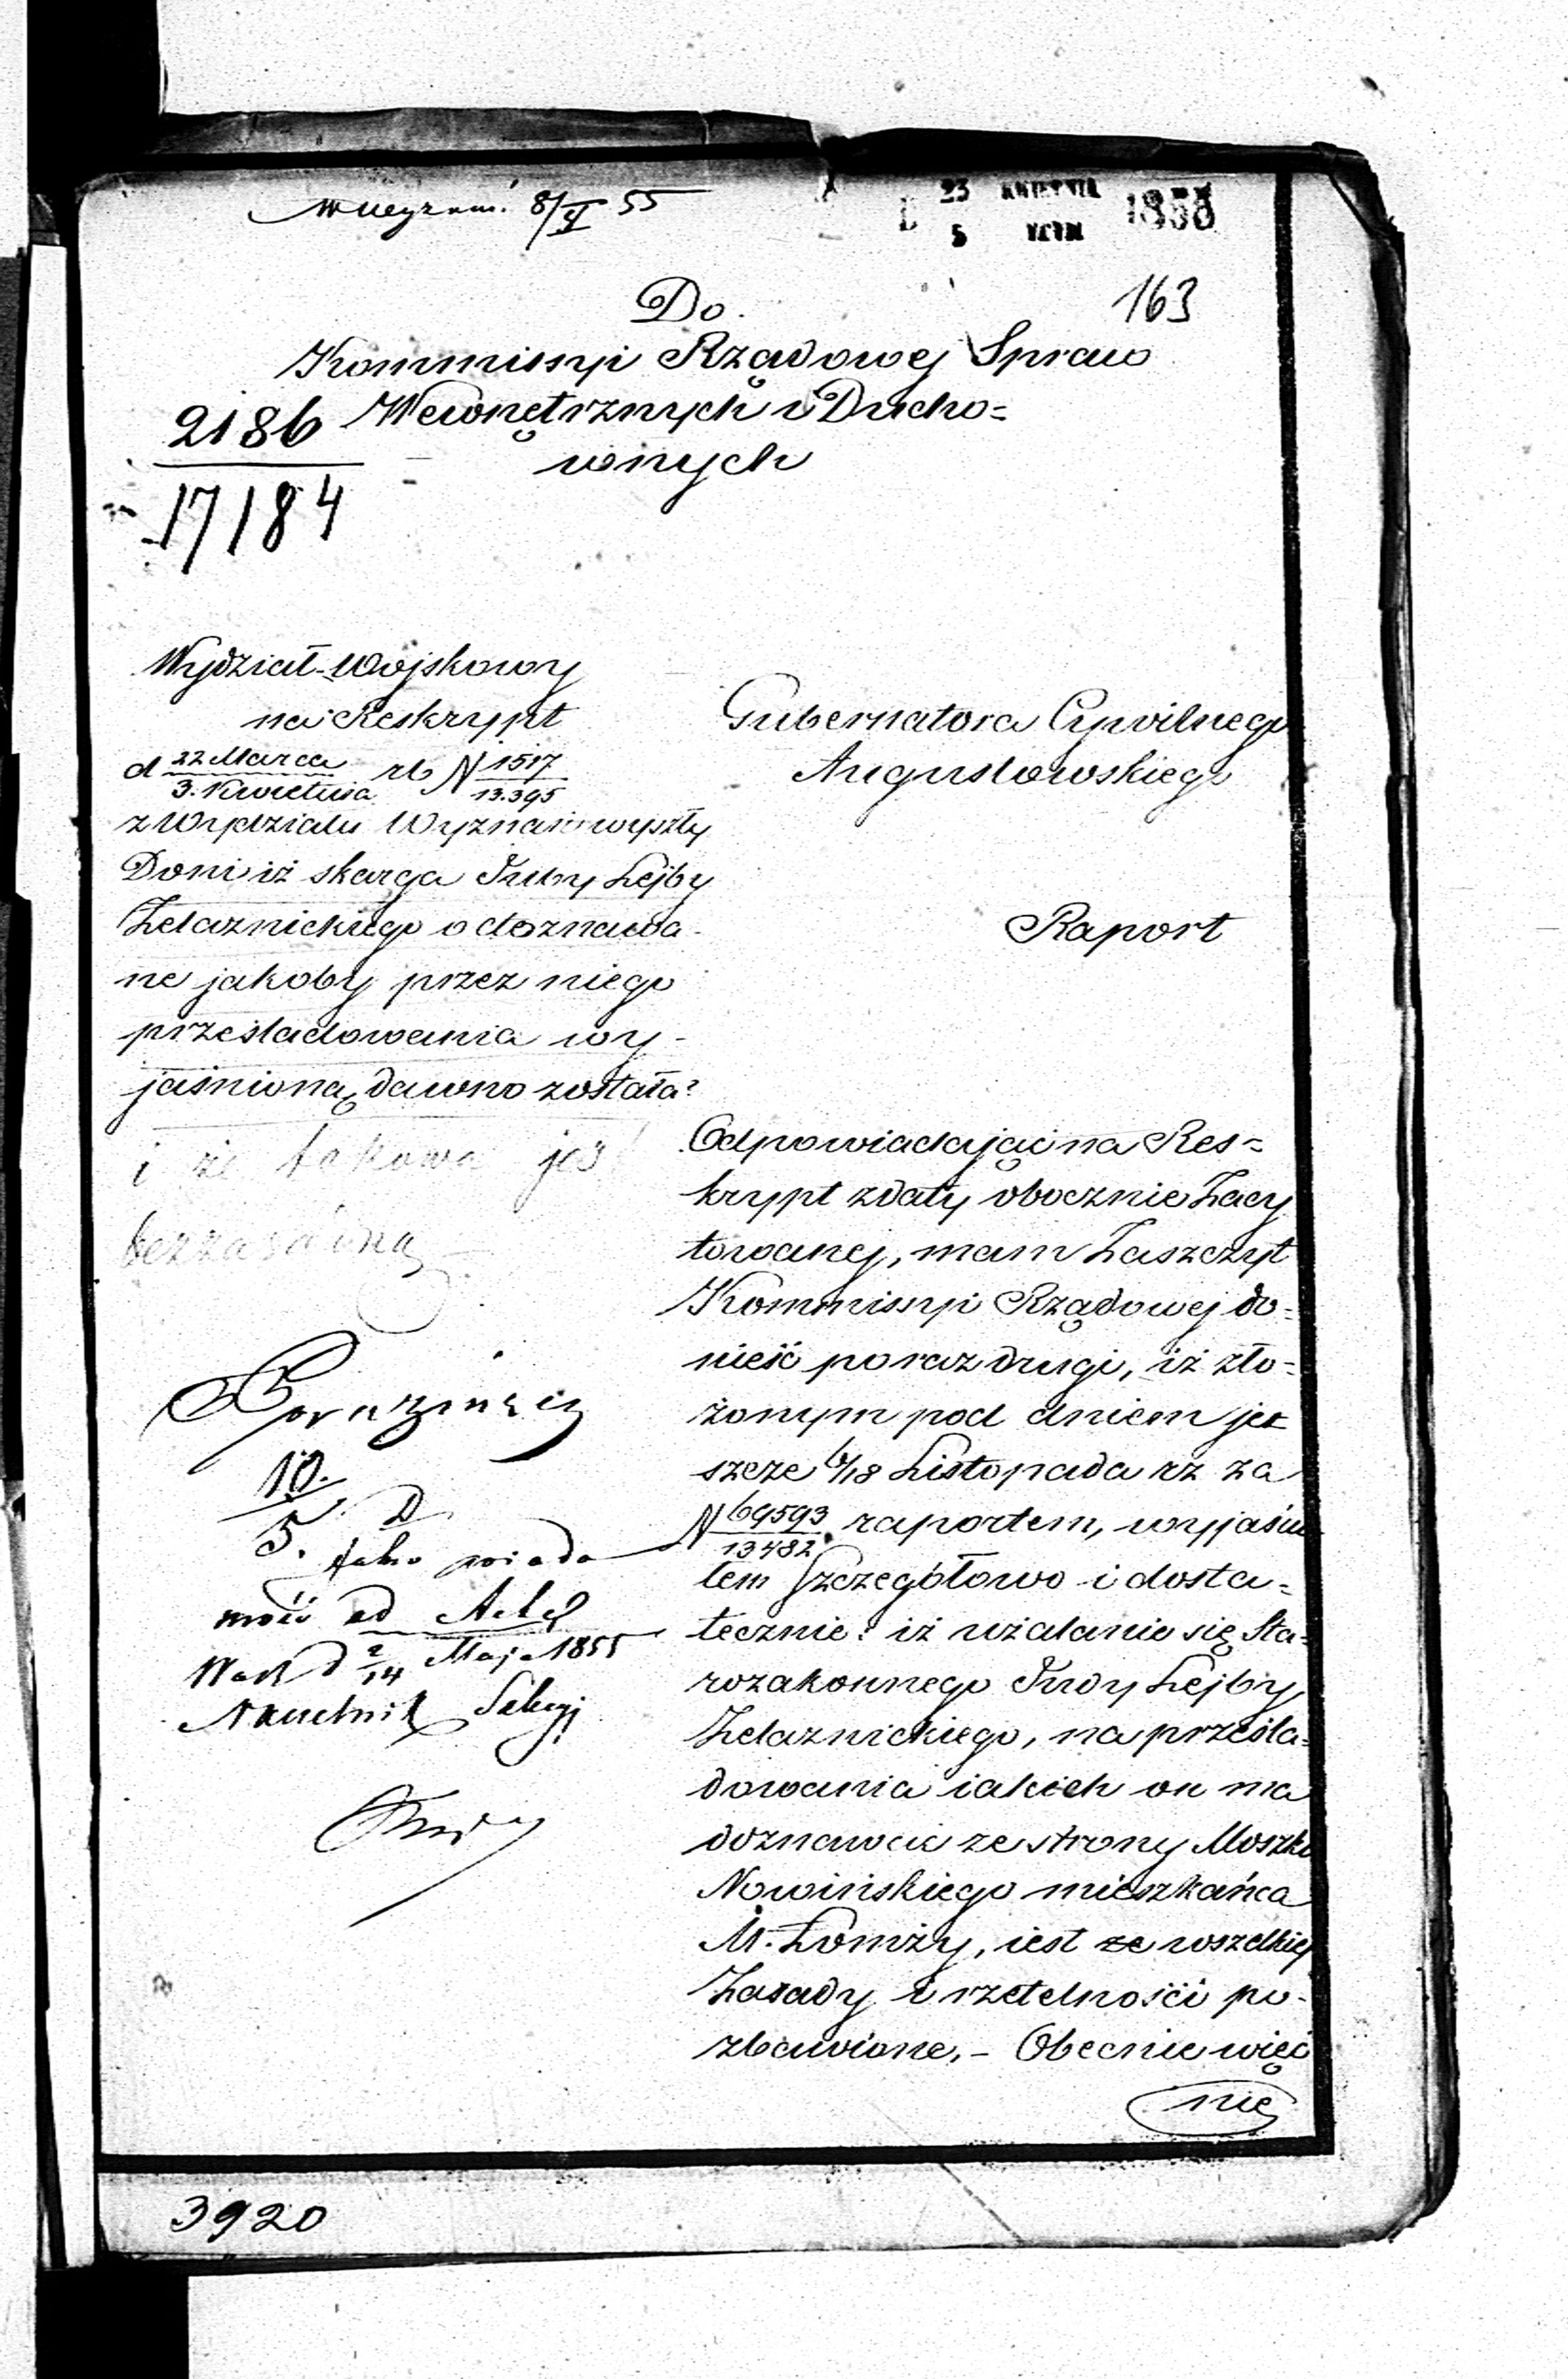 8/V 55
23 KWIETNIA
5 MAJA
185
163
Do
Kommissyi Rządowej Spraw
Wewnętrznych i Ducho=
wnych
2186
17184
Wydział Wojskowy
na Reskrypt
d 22 Marca / 3 Kwietnia rb N 1517 / 13.395
z Wydziału Wyznań wyszły
Doni iż skarga Judy Lejby
Zelaznickiego o doznawa-
ne jakoby przez niego
prześladowania wy-
jaśnioną dawno została
i że takowa jest
bezzasadną
10.
5. D
Jako wiado
mość ad Acta
War d 2/14 Maja 1855
Naczelnik Sekcyi
Gubernatora Cywilnego
Augustowskiego
Raport
Odpowiadając na Res=
krypt z daty obocznie Zacy
towanej, mam Zaszczyt
Kommissyi Rządowej do=
nieść poraz drugi, iż zło=
żonym pod dniem jesz
szcze 6/18 Listopada rz za
N 69593 / 13482 raportem, wyjaśni
łem Szczegółowo i dosta=
tecznie: iż użalanie się Sta=
rozakonnego Judy Lejby
Zelaznickiego, na prześla=
dowania iakich on ma
doznawać ze strony Moszka
Nowińskiego mieszkańca
M. Łomży, iest ze wszelkiej
Zasady i rzetelności po-
zbawione. - Obecnie więc
nie
3920